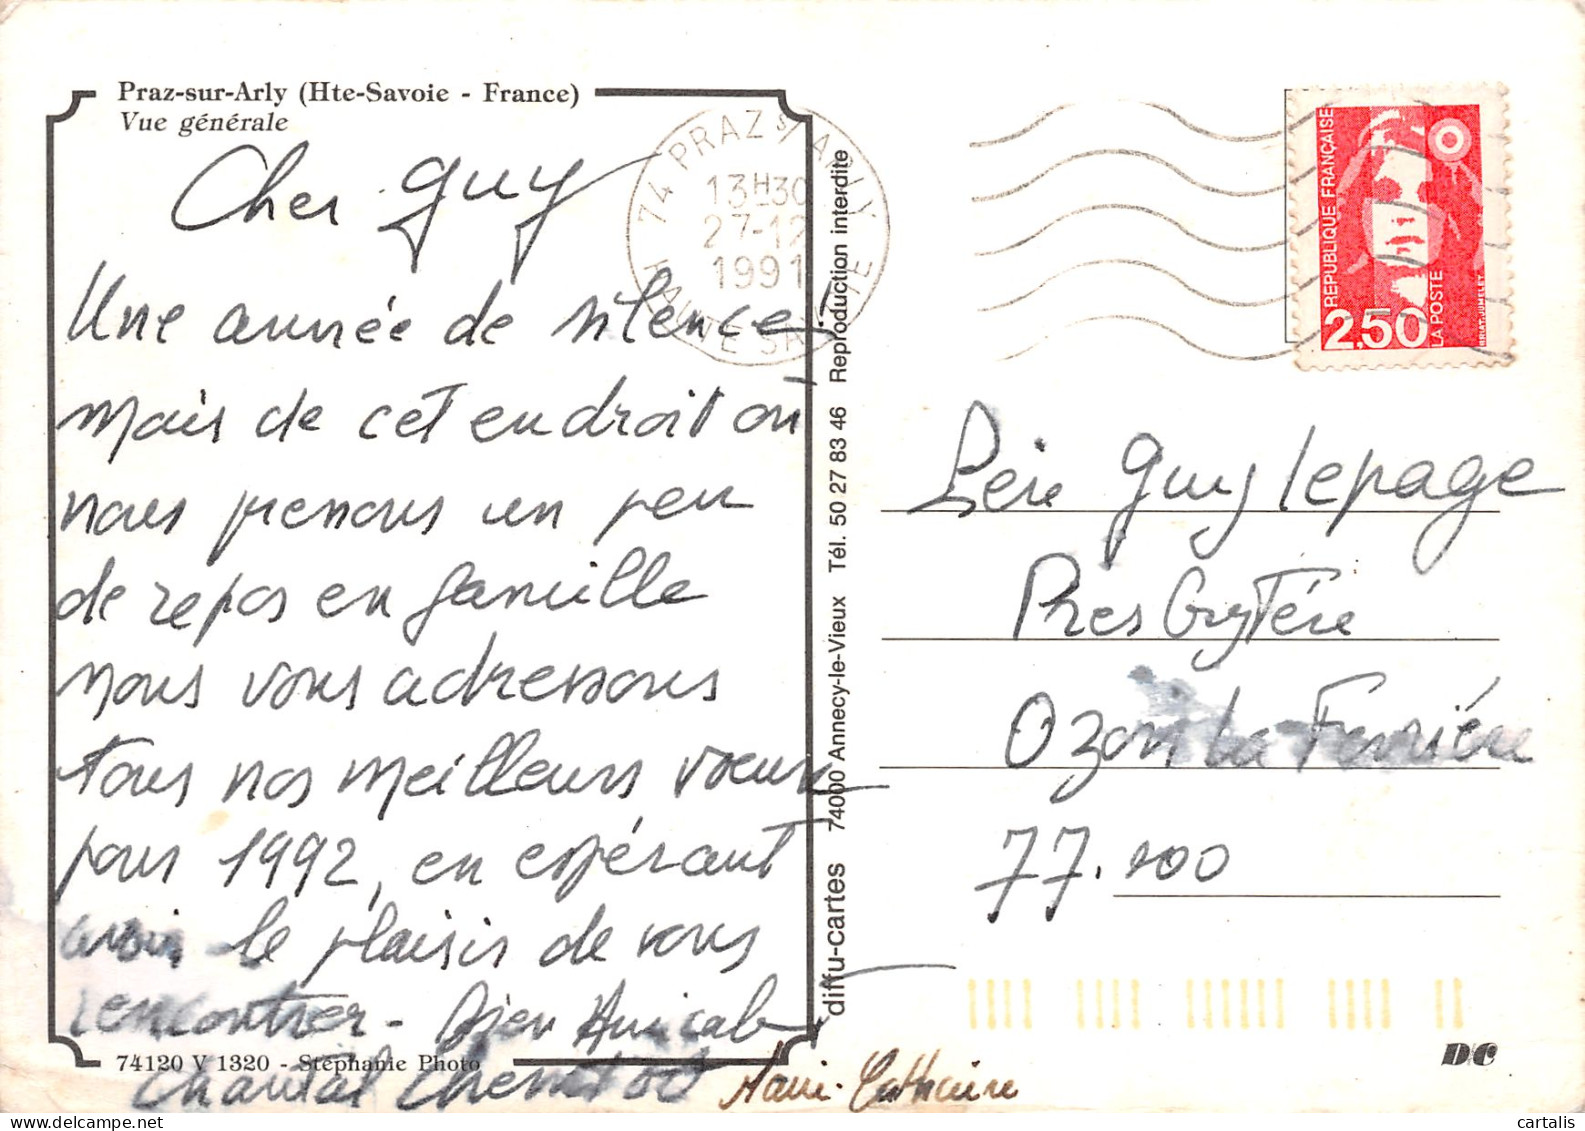 Praz-sur-Arly (Hte-Savoie - France)
Vue générale
Cher Guy
Une année de silence!
mais de cet endroit où
nous prenons un peu
de repos en famille
nous vous adressons
tous nos meilleurs voeux
pour 1992, en espérant
avoir le plaisir de vous
rencontrer - Bien Amicalt
Chantal
Marie-Catherine
74120 V 1320 - Stéphanie Photo
74 PRAZ S/ ARLY
13H30
27-12
1991
HAUTE SAVOIE
diffu-cartes 74000 Annecy-le-Vieux Tél. 50 27 83 46 Reproduction interdite
REPUBLIQUE FRANÇAISE
2,50
LA POSTE
BRIAT-JUMELET
Père Guy Lepage
Presbytère
Ozoir La Ferrière
77.100
D/C
cartalis